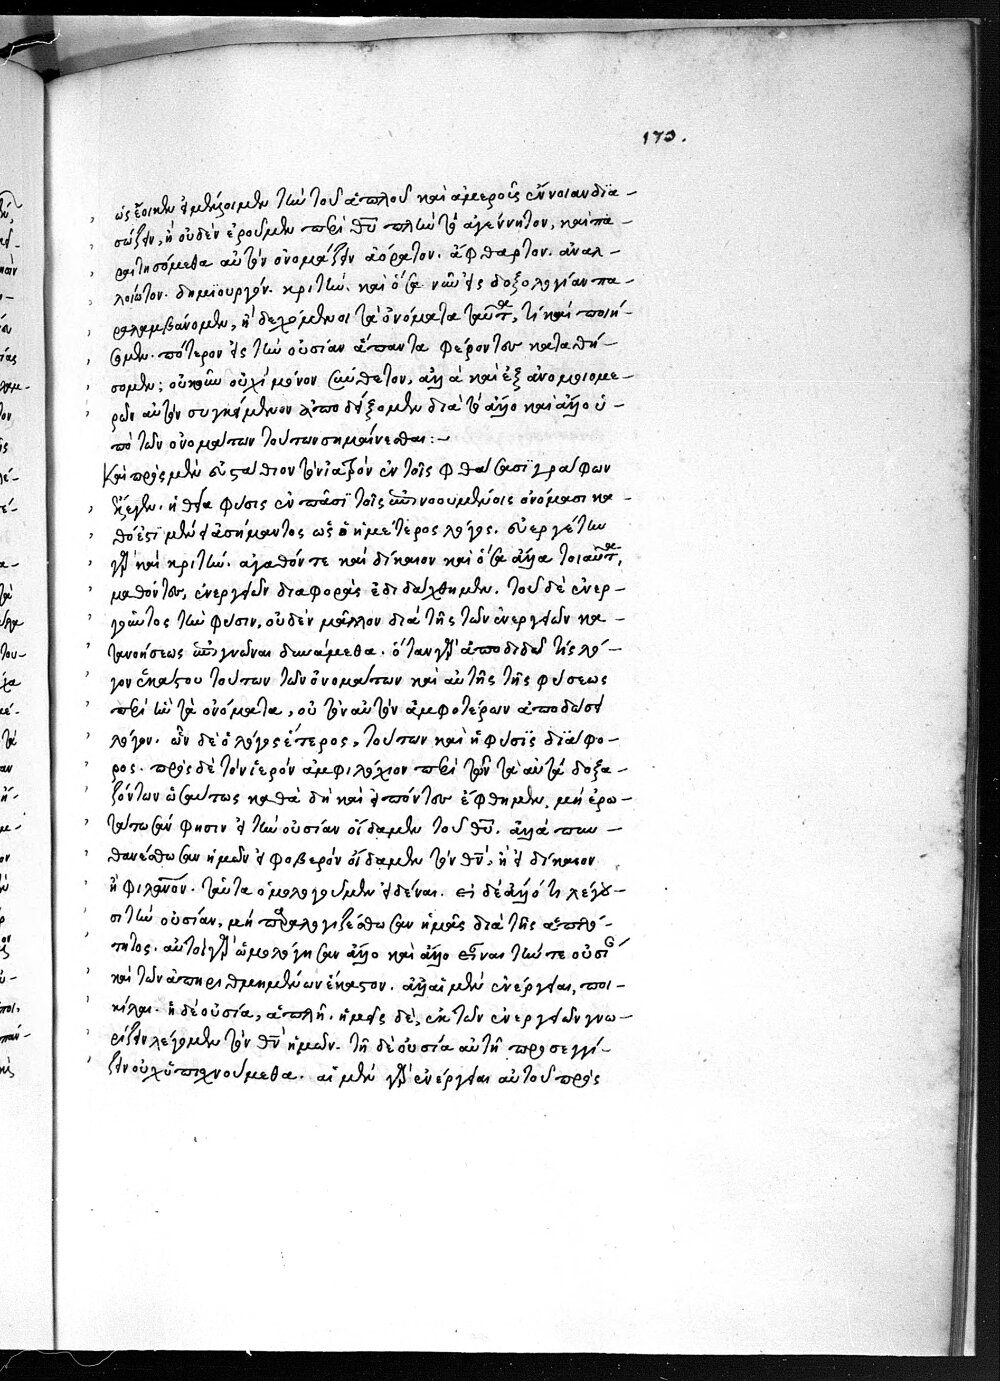 173.
ὡς ἔοικεν εἰ μέλλοιμεν τὴν τοῦ ἁπλοῦ καὶ ἀμεροῦς ἔννοιαν δια-
σώζειν, ἢ οὐδὲν ἐροῦμεν περὶ θυ πλὴν τὸ ἀγέννητον, καὶ πα-
ραιτησόμεθα αὐτὸν ὀνομάζειν ἀόρατον. ἄφθαρτον. ἀναλ-
λοίωτον. δημιουργόν. κριτήν. καὶ ὅσα νῦν εἰς δοξολογίαν πα-
ραλαμβάνομεν, ἢ δεχόμενοι τὰ ὀνόματα ταῦτα, τί καὶ ποιή-
σομεν. πότερον εἰς τὴν οὐσίαν ἅπαντα φέροντες καταθή-
σομεν; οὐκοῦν οὐχὶ μόνον σύνθετον, ἀλλὰ καὶ ἐξ ἀνομοιομε-
ρῶν αὐτὸν συγκείμενον ἀποδείξομεν διὰ τὸ ἄλλο καὶ ἄλλο ὑ-
πὸ τῶν ὀνομάτων τούτων σημαίνεσθαι:-
Καὶ πρὸς μὲν εὐστάθιον τὸν ἰατρὸν ἐν τοῖς φθάσασι γράφων
ἔλεγεν. ἡ θεία φύσις ἐν πᾶσι τοῖς ἐπινοουμένοις ὀνόμασι κα-
θό ἐστι μένει ἀσήμαντος ὡς ὁ ἡμέτερος λόγος. εὐεργέτην
γὰρ καὶ κριτήν. ἀγαθόν τε καὶ δίκαιον καὶ ὅσα ἄλλα τοιαῦτα,
μαθόντες, ἐνεργειῶν διαφορὰς ἐδιδάχθημεν. τοῦ δὲ ἐνερ-
γοῦντος τὴν φύσιν, οὐδὲν μᾶλλον διὰ τῆς τῶν ἐνεργειῶν κα-
τανοήσεως ἐπιγνῶναι δυνάμεθα. ὅταν γὰρ ἀποδιδῷ τις λό-
γον ἑκάστου τούτων τῶν ὀνομάτων καὶ αὐτῆς τῆς φύσεως
περὶ ἣν τὰ ὀνόματα, οὐ τὸν αὐτὸν ἀμφοτέρων ἀποδώσει
λόγον. ὧν δὲ ὁ λόγος ἕτερος, τούτων καὶ ἡ φύσις διάφο-
ρος. πρὸς δὲ τὸν ἱερὸν ἀμφιλόχιον περὶ τῶν τὰ αὐτὰ δοξα-
ζόντων ὡσαύτως καθὰ δὴ καὶ εἰπόντες ἔφθημεν, μὴ ἐρω-
τάτωσάν φησιν εἰ τὴν οὐσίαν οἴδαμεν τοῦ θυ. ἀλλὰ πυν-
θανέσθωσαν ἡμῶν εἰ φοβερὸν οἴδαμεν τὸν θν, ἢ εἰ δίκαιον
ἢ φιλανον. ταῦτα ὁμολογοῦμεν εἰδέναι. εἰ δὲ ἄλλό τι λέγου-
σι τὴν οὐσίαν, μὴ παραλογιζέσθωσαν ἡμᾶς διὰ τῆς ἁπλό-
τητος. αὐτοὶ γὰρ ὡμολόγησαν ἄλλο καὶ ἄλλο εἶναι τήν τε οὐσίαν
καὶ τῶν ἀπηριθμημένων ἕκαστον. ἀλλ' αἱ μὲν ἐνέργειαι, ποι-
κίλαι. ἡ δὲ οὐσία, ἁπλῆ. ἡμεῖς δὲ, ἐκ τῶν ἐνεργειῶν γνω-
ρίζειν λέγομεν τὸν θν ἡμῶν. τῇ δὲ οὐσίᾳ αὐτῇ προσεγγί-
ζειν οὐχ ὑπισχνούμεθα. αἱ μὲν γὰρ ἐνέργειαι αὐτοῦ πρὸς